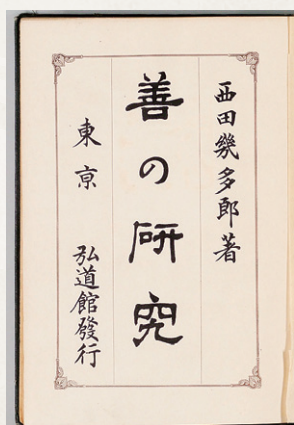 西田幾多郎著
善の研究
東亰 弘道館發行